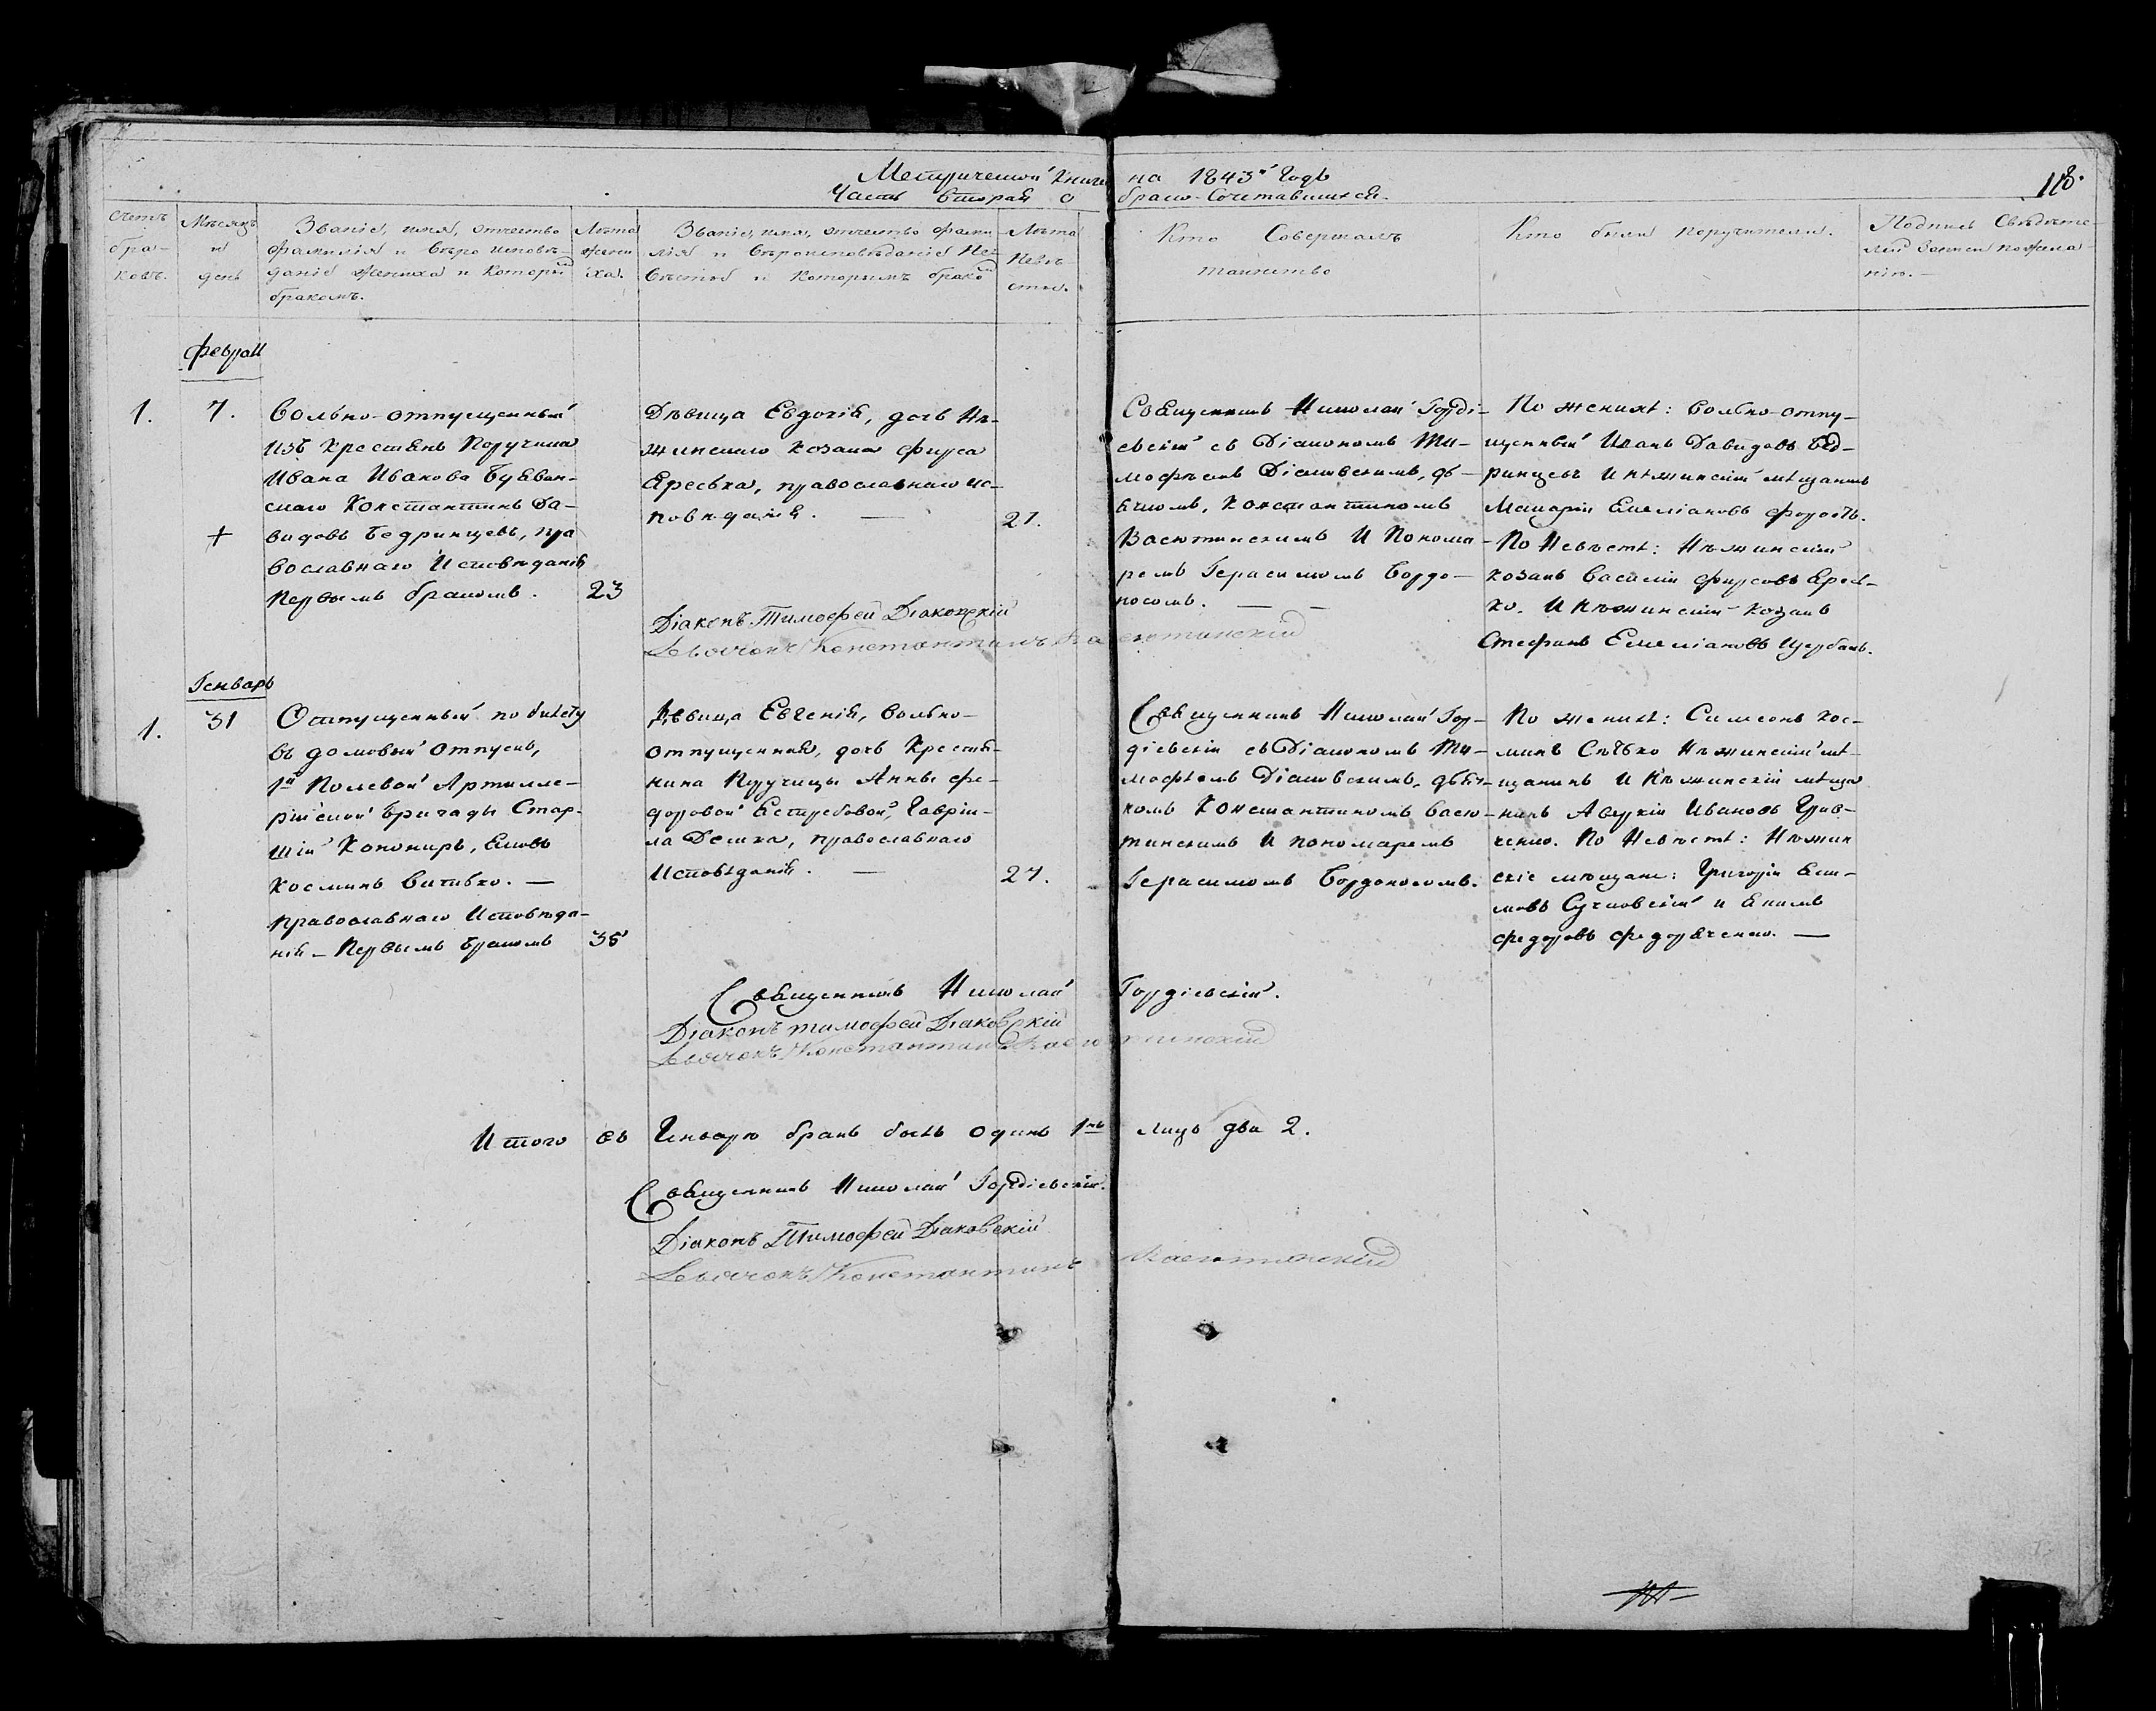 Метрической книги на 1843й Годъ
118.
Часть вторая о бракосочетавшихся.
Счетъ браковъ.
Мѣсяцъ и день
Званіе, имя, отчество
фамилія и вѣроисповѣ-
даніе жениха и которымъ
бракомъ.
Лѣта жениха.
Званіе, имя, отчество фами-
лія и вѣроисповѣданіе Не-
вѣсты и которымъ бракомъ
Лѣта Невѣсты.
Кто Совершалъ
таинство
Кто были поручители.
Подпись Свидѣте-
лей записи по жела-
нію. —
Февраль
1.
7.
Вольно-отпущенный
изъ Крестьянъ Поручика
Ивана Иванова
скаго Константинъ Да-
видовъ Бедринцевъ, пра
вославнаго Исповѣданія
первымъ бракомъ.
+
23
Дѣвица Евдокія, дочь Нѣ-
жинскаго козака Фирса
Ереська, православнаго ис-
повѣданія. —
21.
Священникъ Николай Горді-
евскій съ Діакономъ Ти-
мофѣемъ Діаковскимъ, дь-
ячкомъ, Константиномъ
Васютинскимъ и Понома-
ремъ Герасимомъ Бордо-
носомъ. — —
По женихѣ: вольно-отпу-
щенный Иванъ Давидовъ Бед-
ринцевъ и нѣжинскій мѣщанинъ
Макарій Емеліановъ
По Невѣстѣ: Нѣжинскій
козакъ Василій Фирсовъ Ересь-
ко. и нѣжинскій козакъ
Стефанъ Емеліановъ Щербакъ.
Діаконъ Тимофей Діаковскій
Дьячокъ Константинъ Васютинскій
Генварь
1.
31
Отпущенный по билету
въ домовый отпускъ,
1й Полевой Артилле-
рійской бригады Стар-
шій Канониръ,
Косминъ —
православнаго Исповѣда-
нія – Первымъ бракомъ
35
Дѣвица Евгенія, вольно-
отпущенная, дочь Крестья-
нина Поручицы Анны Фе-
доровой Ястребовой, Гаврі-
ла православнаго
Исповѣданія. —
27.
Священникъ Николай Гор-
діевскій съ Діакономъ Ти-
мофѣемъ Діаковскимъ, дьяч-
комъ Константиномъ Васю-
тинскимъ и пономаремъ
Герасимомъ Бордоносомъ.
По женихѣ: Симеонъ Кос-
минъ Нѣжинскій мѣ-
щанинъ и Нѣжинскій мѣща
нинъ Аверкій Ивановъ
По Невѣстѣ: Нѣжин
скіе мѣщане: Григорій
и Екимъ
Федоровъ Федорченко. —
Священникъ Николай Гордіевскій.
Діаконъ Тимофей Діаковскій
Дьячокъ Константинъ Васютинскій
Итого въ Генварѣ бракъ былъ одинъ 1нъ лицъ два 2.
Священникъ Николай Гордіевскій.
Діаконъ Тимофей Діаковскій
Дьячокъ Константинъ Васютинскій